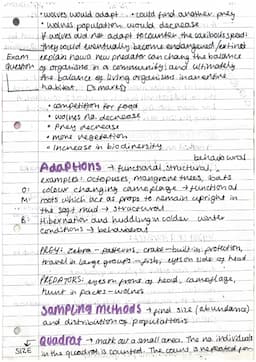 • wolves would adapt • could find another prey
• wolves population would decrease
If wolves did not adapt to counter the caribou's food
they could eventually become endangered/extinct
Exam question
explain how a new predator can change the balance
of organisms in a community and ultimately
the balance of living organisms in an entire
habitat. [5 marks]
• competition for food
• wolves no. decrease
• Prey decrease
• more vegetation
• increase in biodiversity
behavioural
Adaptions → functional, structural,
examples: octopuses, mangrove trees, bats
O: colour changing camouflage → functional
M: roots which act as props to remain upright in
the soft mud → structural
B: Hibernation and huddling in colder winter
conditions → behavioural
PREY: zebra - patterns, crabs - built-in protection,
travel in large groups - fish, eyes on side of head
PREDATORS: eyes on front of head, camouflage,
hunt in packs - wolves
Sampling methods → find size (abundance)
and distribution of populations
quadrat → mark out a small area. The no. individuals
SIZE
in the quadrat is counted. The count is repeated for